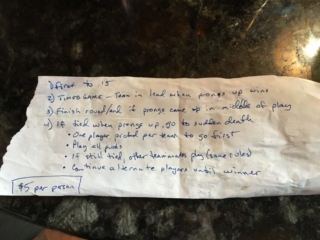 1) First to 15
2) Timed Game - Team in lead when prongs up wins
3) Finish round/end if prongs came up in middle of play
4) If tied when prongs up, go to sudden death
• One player picked per team to go first
• Play all pucks
• If still tied, other teammates play (same rules)
• Continue alternate players until winner
$5 per person